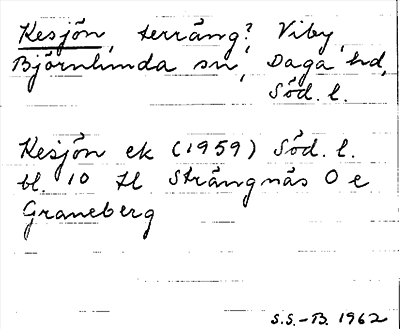 Kesjön, terräng? Viby,
Björnlunda sn, Daga hd,
Söd. l.
Kesjön ek (1959) Söd. l.
bl. 10 H Strängnäs O e
Graneberg
S.S.-B. 1962